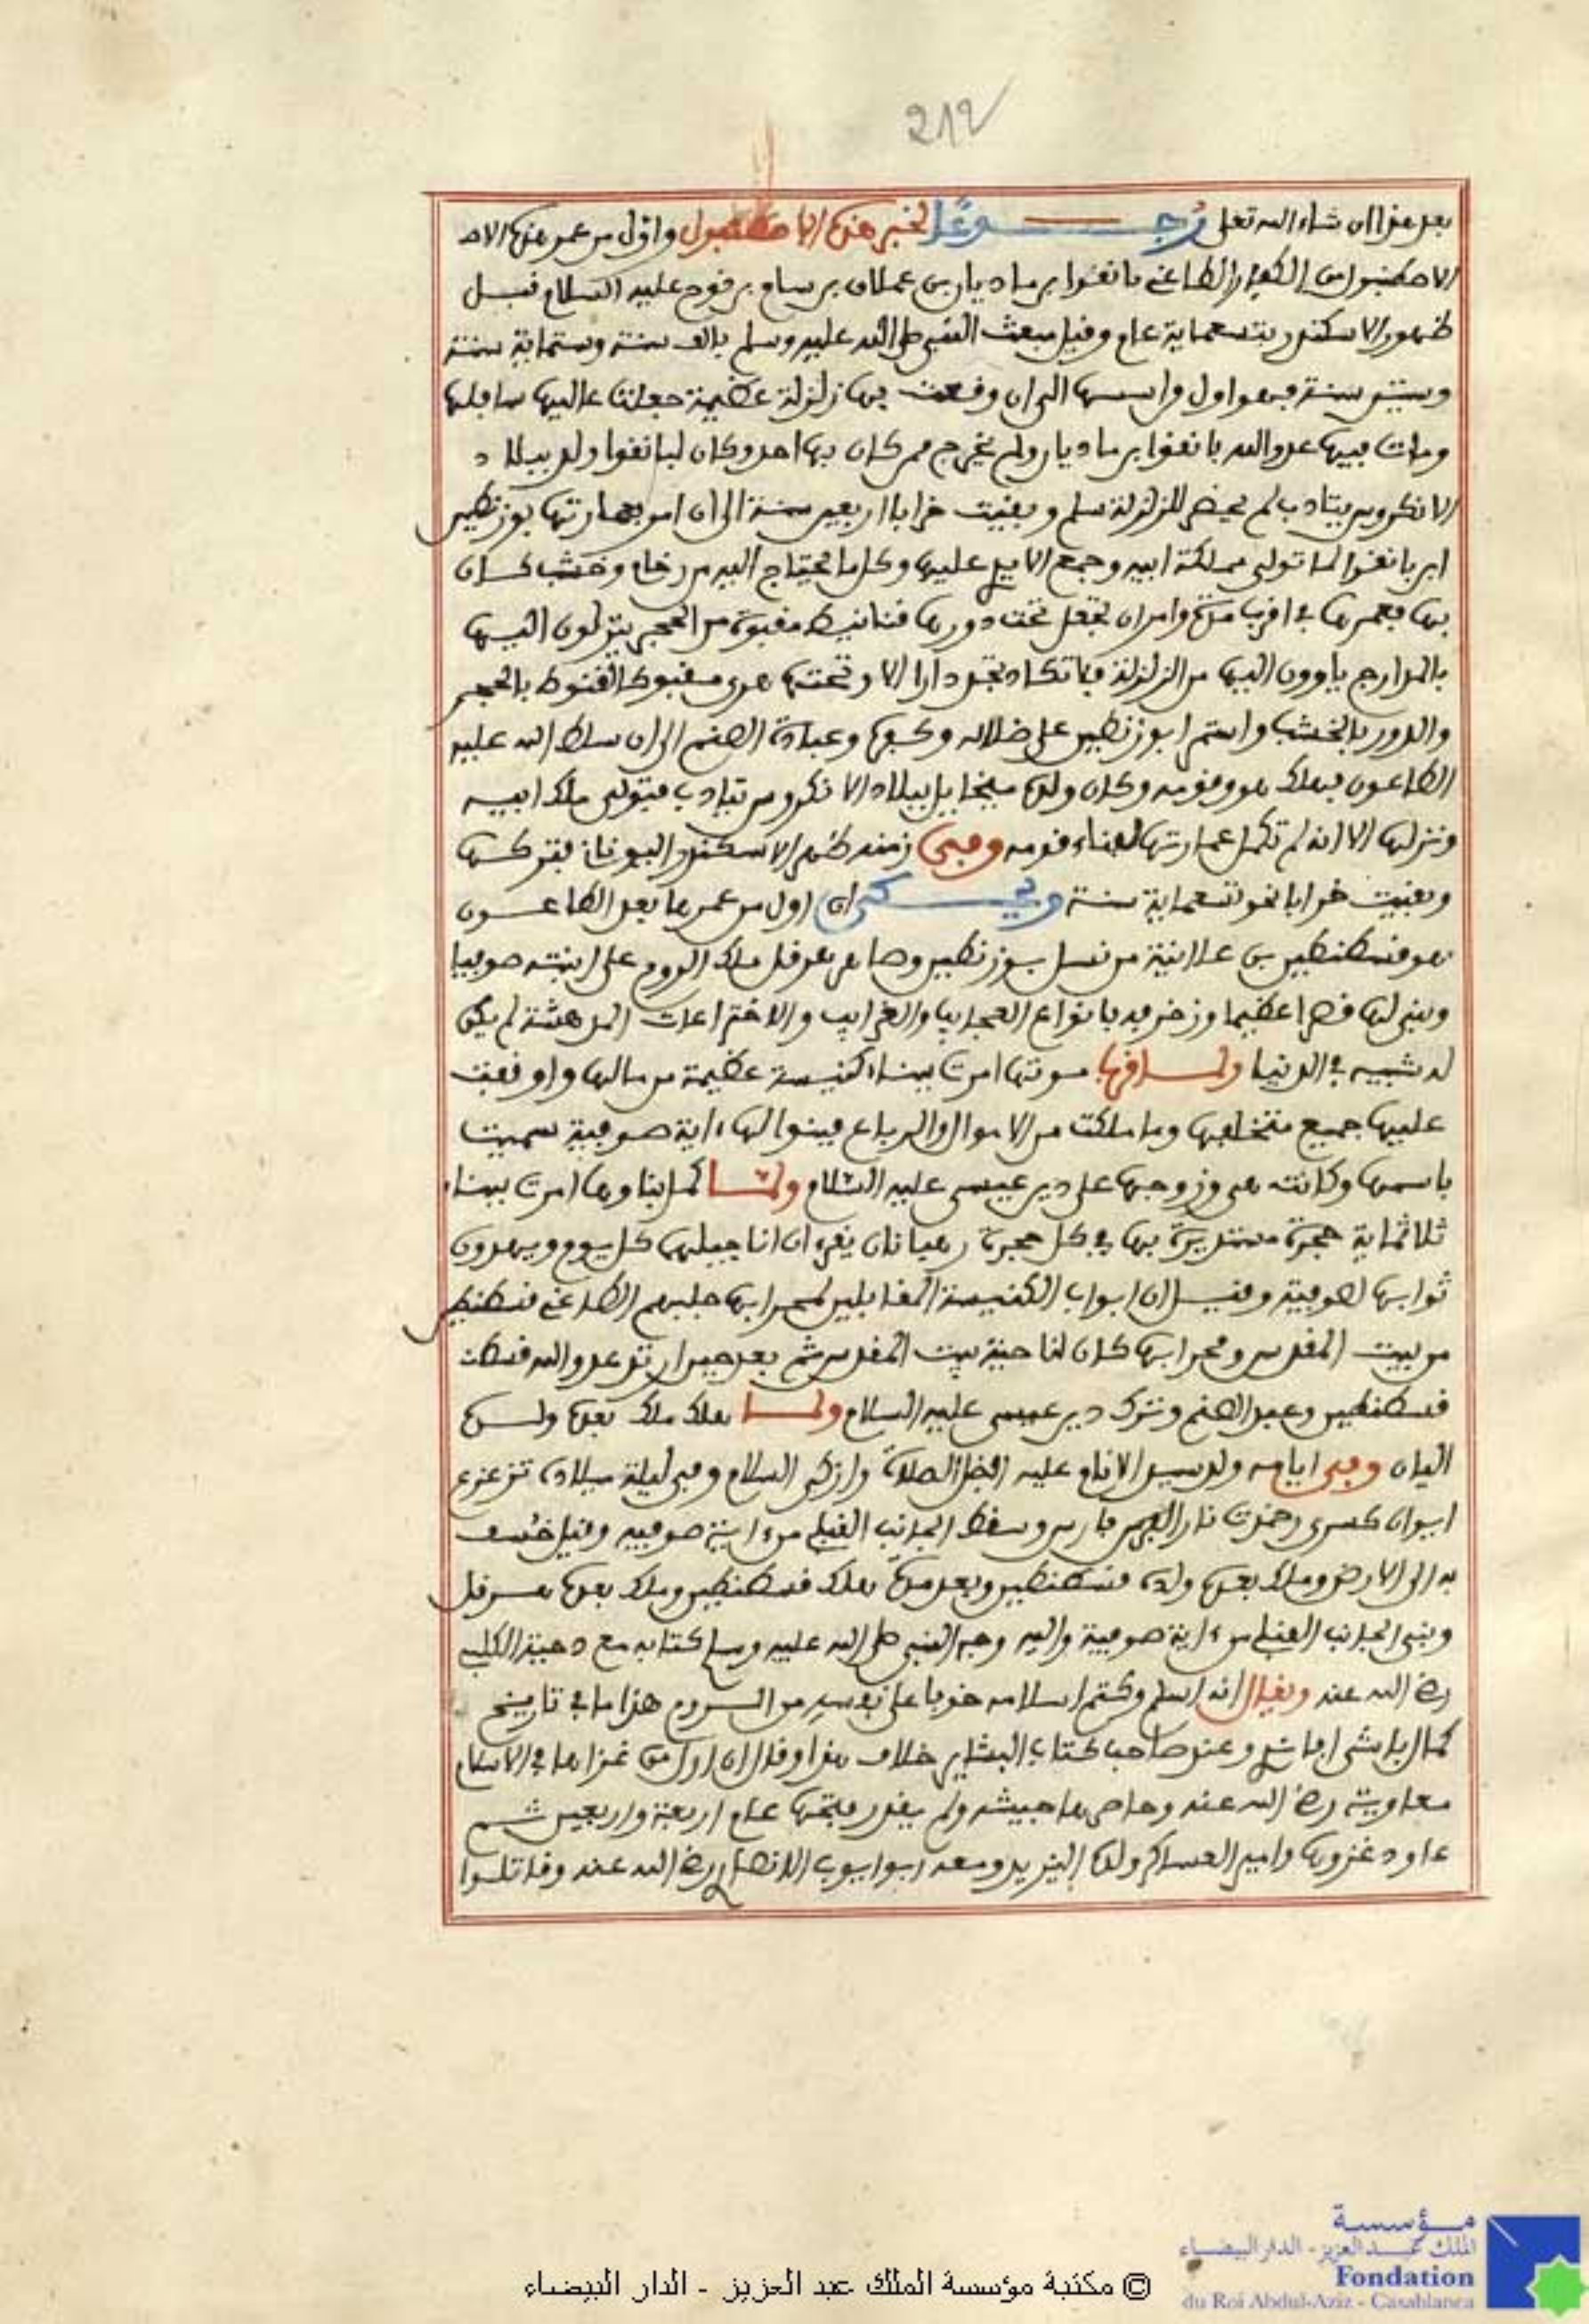 212
بعد هذا ان شاء الله تعلى رجوعا لخبر هذه الاصطنبول واول من عمر هذه الاص
الاصطنبول من الكفار الطاغي يانغوا بن ماديار بن عملاق بن سام بن نوح عليه السلام قبل
ظهور الاسكندر بتسعماية عام وقبل مبعث النبي صلى الله عليه وسلم بالف سنة وستماية سنة
وستين سنة فهو اول من اسسها الى ان وقعت بها زلزلة عظيمة جعلت عاليها سافلها
ومات فيها عدو الله يانغوا بن ماديار ولم يخرج ممن كان بها احد وكان ليانغوا ولد ببلاد
الانكروس يتادب لم يحضر للزلزلة سلم وبقيت خرابا اربعين سنة الى ان امر بعمارتها بوزنطين
ابن يانغوا لما تولى مملكة ابيه وجمع الايدي عليها وكل ما يحتاج اليه من رخام وخشب كان
بها فعمرها في اقرب مدة وامر ان تجعل تحت دورها قنانيط مقبوة من الحجر ينزلون اليها
بالمدارج ياوون اليها من الزلزلة فما تكاد تجد دارا الا وتحتها هري مقبوة القنوط بالحجر
والدور بالخشب واستمر ابوزنطين على ضلاله وكفره وعبادة الصنم الى ان سلط الله عليه
الطاعون فهلك هو وقومه وكان ولده ميخاييل ببلاد الانكروس يتادب فتولى ملك ابيه
ونزلها الا انه لم تكمل عمارتها لفناء قومه وفي زمنه ظهر الاسكندر اليوناني فتركها
وبقيت خرابا نحو تسعماية سنة ويحكى ان اول من عمرها بعد الطاعون
هو قسطنطين بن علانية من نسل بوزنطين وصاهر هرقل ملك الروم على ابنته صوفيا
وبنى لها قصرا عظيما وزخرفه بانواع العجايب والغرايب والاختراعات المدهشة لم يكن
له شبيه في الدنيا ولما قرب موتها امرت ببناء كنيسة عظيمة من مالها واوقفت
عليها جميع متخلفها وما ملكت من الاموال والرباع فبنوا لها ءاية صوفية سميت
باسمها وكانت هي وزوجها على دين عيسى عليه السلام ولما كمل بناوها امرت ببناء
ثلاثماية حجرة مستديرة بها في كل حجرة رهبانان يقرءان اناجيلهم كل يوم ويهدون
ثوابها لصوفية وقيل ان ابواب الكنيسة المقابلين لمحرابها جلبهم الطاغي قسطنطين
من بيت المقدس ومحرابها كان لناحية بيت المقدس ثم بعد حين ارتد عدو الله قسطنـ
قسطنطين وعبد الصنم وترك دين عيسى عليه السلام ولما هلك ملك بعده ولده
اليان وفي ايامه ولد سيد الانام عليه افضل الصلاة وازكى السلام وفي ليلة ميلاده تزعزع
ايوان كسرى وخمدت نار الفرس فارس وسقط الجانب القبلي من ءاية صوفيه وقيل خسف
به الى الارض وملك بعده ولده قسطنطين وبعد مدة هلك قسطنطين وملك بعده هرقل
وبنى الجانب القبلي من ءاية صوفية واليه وجه النبي صلى الله عليه وسلم كتابه مع دحية الكلبي
رضي الله عنه ويقال انه اسلم وكتم اسلامه خوفا على نفسه من الروم هذا ما في تاريخ
كمال باشي وعند صاحب كتاب البشاير خلاف هذا وقال ان اول من غزاها في الاسلام
معاوية رضي الله عنه وحاصرها جيشه ولم يقدر بفتحها عام اربعة واربعين ثم
عاود غزوها وامير العساكر ولده اليزيد ومعه ابو ايوب الانصاري رضي الله عنه وقاتلوا
مؤسسة
الملك عبد العزيز - الدار البيضاء
Fondation
du Roi Abdul-Aziz - Casablanca
© مكتبة مؤسسة الملك عبد العزيز - الدار البيضاء